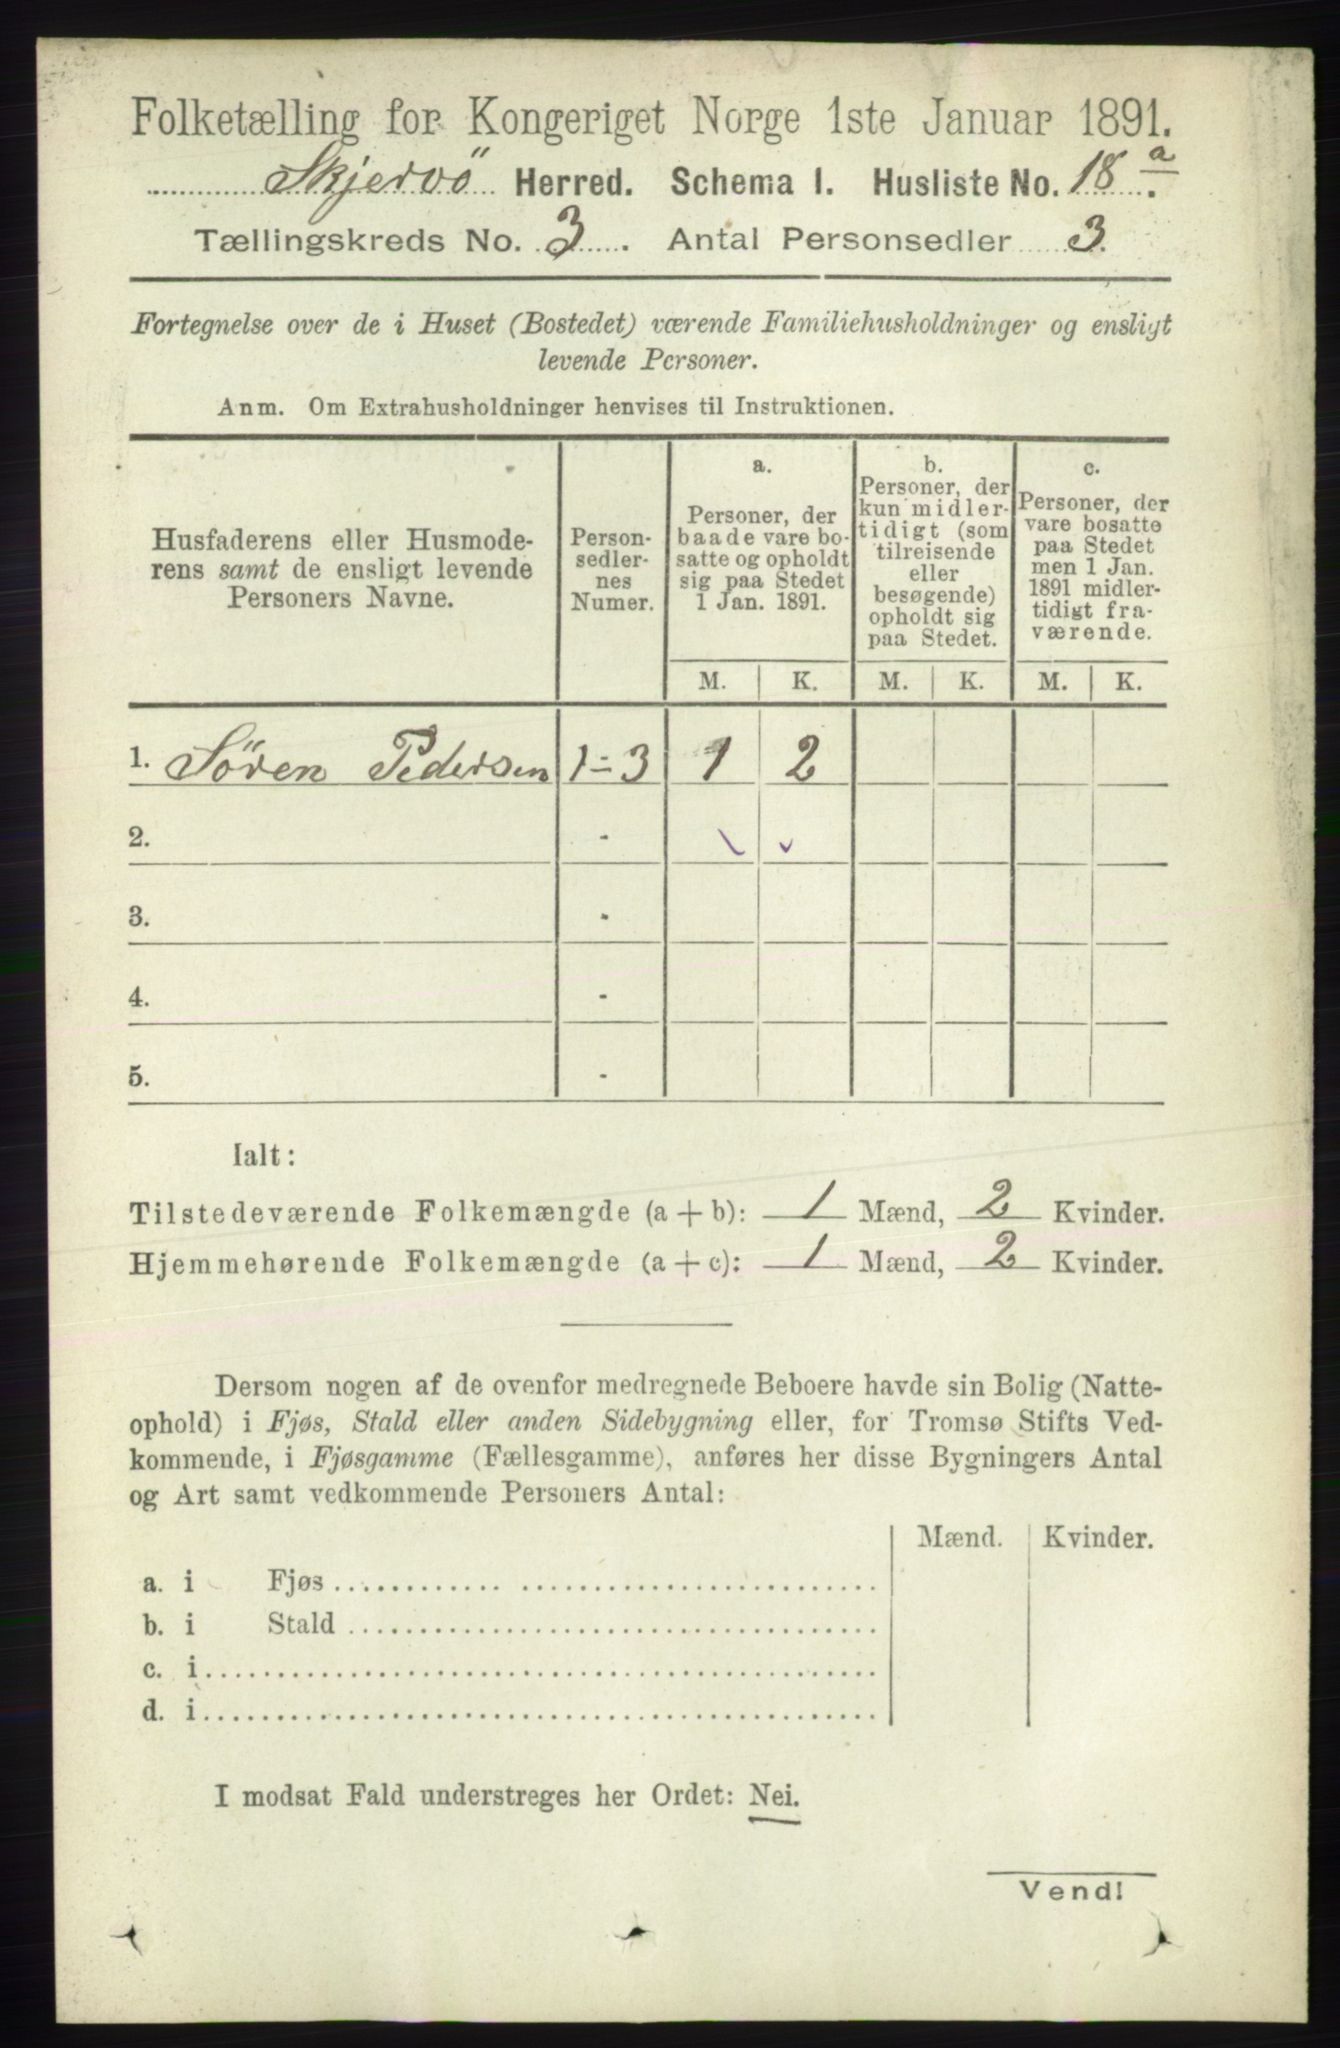 Folketælling for Kongeriget Norge 1ste Januar 1891.
Skjervö Herred. Schema I. Husliste No. 18 a.
Tællingskreds No. 3. Antal Personsedler 3.
Fortegnelse over de i Huset (Bostedet) værende Familiehusholdninger og ensligt
levende Personer.
Anm. Om Extrahusholdninger henvises til Instruktionen.
Husfaderens eller Husmode-
rens samt de ensligt levende
Personers Navne.
Person-
sedler-
nes
Numer.
a.
Personer, der
baade vare bo-
satte og opholdt
sig paa Stedet
1 Jan. 1891.
b.
Personer, der
kun midler-
tidigt (som
tilreisende
eller
besøgende)
opholdt sig
paa Stedet.
c.
Personer, der
vare bosatte
paa Stedet
men 1 Jan.
1891 midler-
tidigt fra-
værende.
M. K. M. K. M. K.
1. Sören Pedersen 1-3 1 2
2. -
3. -
4. -
5. -
Ialt:
Tilstedeværende Folkemængde (a+b): 1 Mænd, 2 Kvinder.
Hjemmehørende Folkemængde (a+c): 1 Mænd, 2 Kvinder.
Dersom nogen af de ovenfor medregnede Beboere havde sin Bolig (Natte-
ophold) i Fjøs, Stald eller anden Sidebygning eller, for Tromsø Stifts Ved-
kommende, i Fjøsgamme (Fællesgamme), anføres her disse Bygningers Antal
og Art samt vedkommende Personers Antal:
Mænd. Kvinder.
a. i Fjøs
b. i Stald
c. i
d. i
I modsat Fald understreges her Ordet: Nei.
Vend!